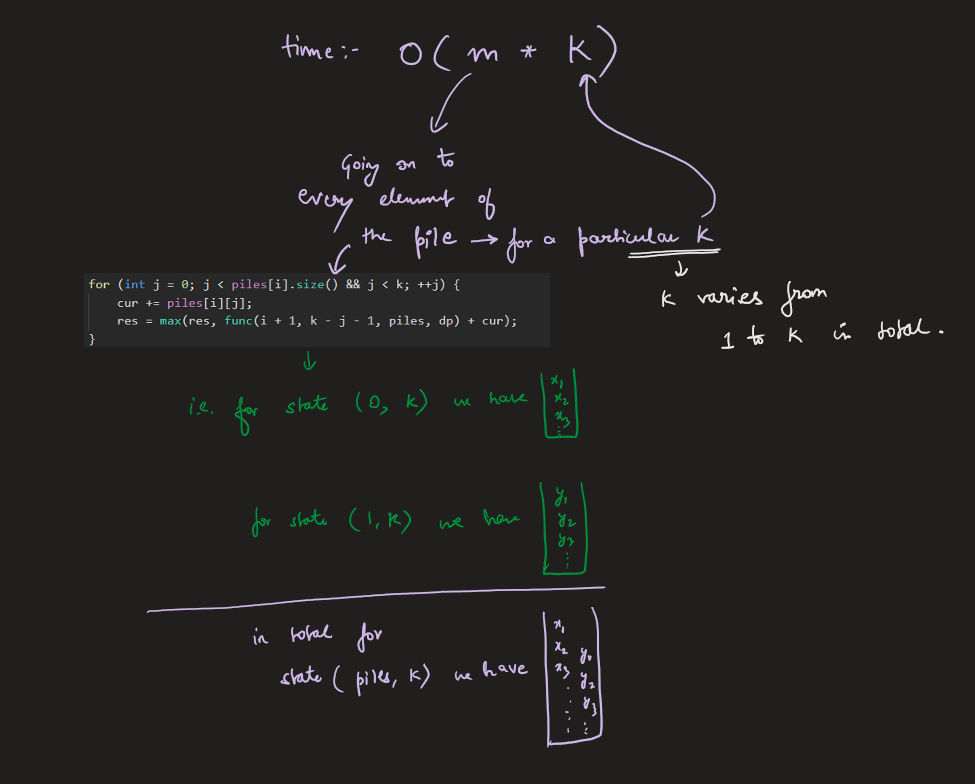 time:- O(m * K)
Going on to
every element of
the pile → for a particular K
K varies from
1 to K in total.
for (int j = 0; j < piles[i].size() && j < k; ++j) {
cur += piles[i][j];
res = max(res, func(i + 1, k - j - 1, piles, dp) + cur);
}
i.e. for state (0, K) we have
x1
x2
x3
⋮
for state (1, K) we have
y1
y2
y3
⋮
in total for
state (piles, K) we have
x1
x2 y1
x3 y2
. y3
⋮ ⋮